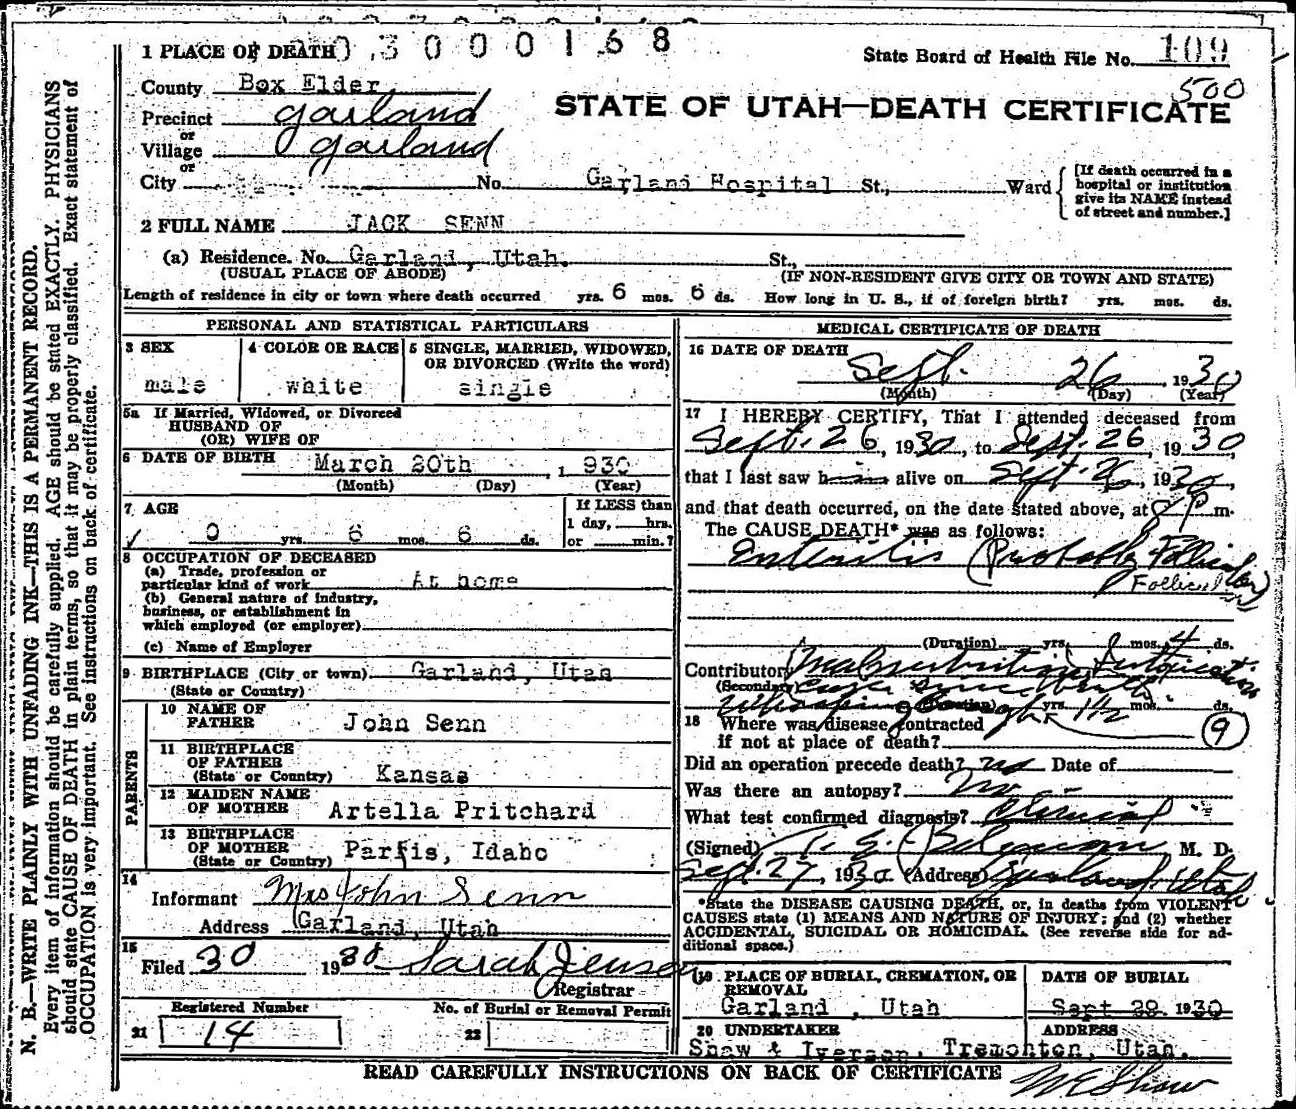 1 PLACE OF DEATH 0 3 0 0 0 1 6 8
State Board of Health File No. 109
500
County Box Elder
STATE OF UTAH—DEATH CERTIFICATE
Precinct Garland
or
Village Garland
or
City No. Garland Hospital St., Ward
[If death occurred in a hospital or institution give its NAME instead of street and number.]
2 FULL NAME JACK SENN
(a) Residence. No. Garland, Utah. St.,
(USUAL PLACE OF ABODE) (IF NON-RESIDENT GIVE CITY OR TOWN AND STATE)
Length of residence in city or town where death occurred yrs. 6 mos. 6 ds. How long in U. S., if of foreign birth? yrs. mos. ds.
PERSONAL AND STATISTICAL PARTICULARS
3 SEX male
4 COLOR OR RACE white
5 SINGLE, MARRIED, WIDOWED, OR DIVORCED (Write the word) single
5a If Married, Widowed, or Divorced
HUSBAND OF
(OR) WIFE OF
6 DATE OF BIRTH March 20th, 1930
(Month) (Day) (Year)
7 AGE 0 yrs. 6 mos. 6 ds.
If LESS than
1 day, hrs.
or min.?
8 OCCUPATION OF DECEASED
(a) Trade, profession or
particular kind of work At home
(b) General nature of industry,
business, or establishment in
which employed (or employer)
(c) Name of Employer
9 BIRTHPLACE (City or town) Garland, Utah
(State or Country)
PARENTS
10 NAME OF FATHER John Senn
11 BIRTHPLACE OF FATHER (State or Country) Kansas
12 MAIDEN NAME OF MOTHER Artella Pritchard
13 BIRTHPLACE OF MOTHER (State or Country) Parris, Idaho
14 Informant Mrs John Senn
Address Garland, Utah
15 Filed 30 1930 Sarah Jensen
Registrar
Registered Number
21 14
No. of Burial or Removal Permit
22
MEDICAL CERTIFICATE OF DEATH
16 DATE OF DEATH
Sept. 26, 1930
(Month) (Day) (Year)
17 I HEREBY CERTIFY, That I attended deceased from
Sept. 26, 1930, to Sept. 26, 1930,
that I last saw him alive on Sept 26, 1930,
and that death occurred, on the date stated above, at 8 P m.
The CAUSE DEATH* was as follows:
Enteritis (Probably Follicular)
Follicular
(Duration) yrs. mos. 4 ds.
Contributory Malnutrition, Intoxication
(Secondary) ever since birth
Whooping Cough 1 1/2
(Duration) yrs. mos. ds.
18 Where was disease contracted
if not at place of death? 9
Did an operation precede death? no Date of
Was there an autopsy? No
What test confirmed diagnosis? Clinical
(Signed) M. D.
Sept. 27, 1930 (Address) Garland, Utah
*State the DISEASE CAUSING DEATH, or, in deaths from VIOLENT
CAUSES state (1) MEANS AND NATURE OF INJURY; and (2) whether
ACCIDENTAL, SUICIDAL OR HOMICIDAL. (See reverse side for ad-
ditional space.)
19 PLACE OF BURIAL, CREMATION, OR REMOVAL
Garland, Utah
DATE OF BURIAL
Sept 28 1930
20 UNDERTAKER ADDRESS
Shaw & Iverson, Tremonton, Utah.
READ CAREFULLY INSTRUCTIONS ON BACK OF CERTIFICATE
N. B.—WRITE PLAINLY WITH UNFADING INK—THIS IS A PERMANENT RECORD.
Every item of information should be carefully supplied. AGE should be stated EXACTLY. PHYSICIANS
should state CAUSE OF DEATH in plain terms, so that it may be properly classified. Exact statement of
OCCUPATION is very important. See instructions on back of certificate.